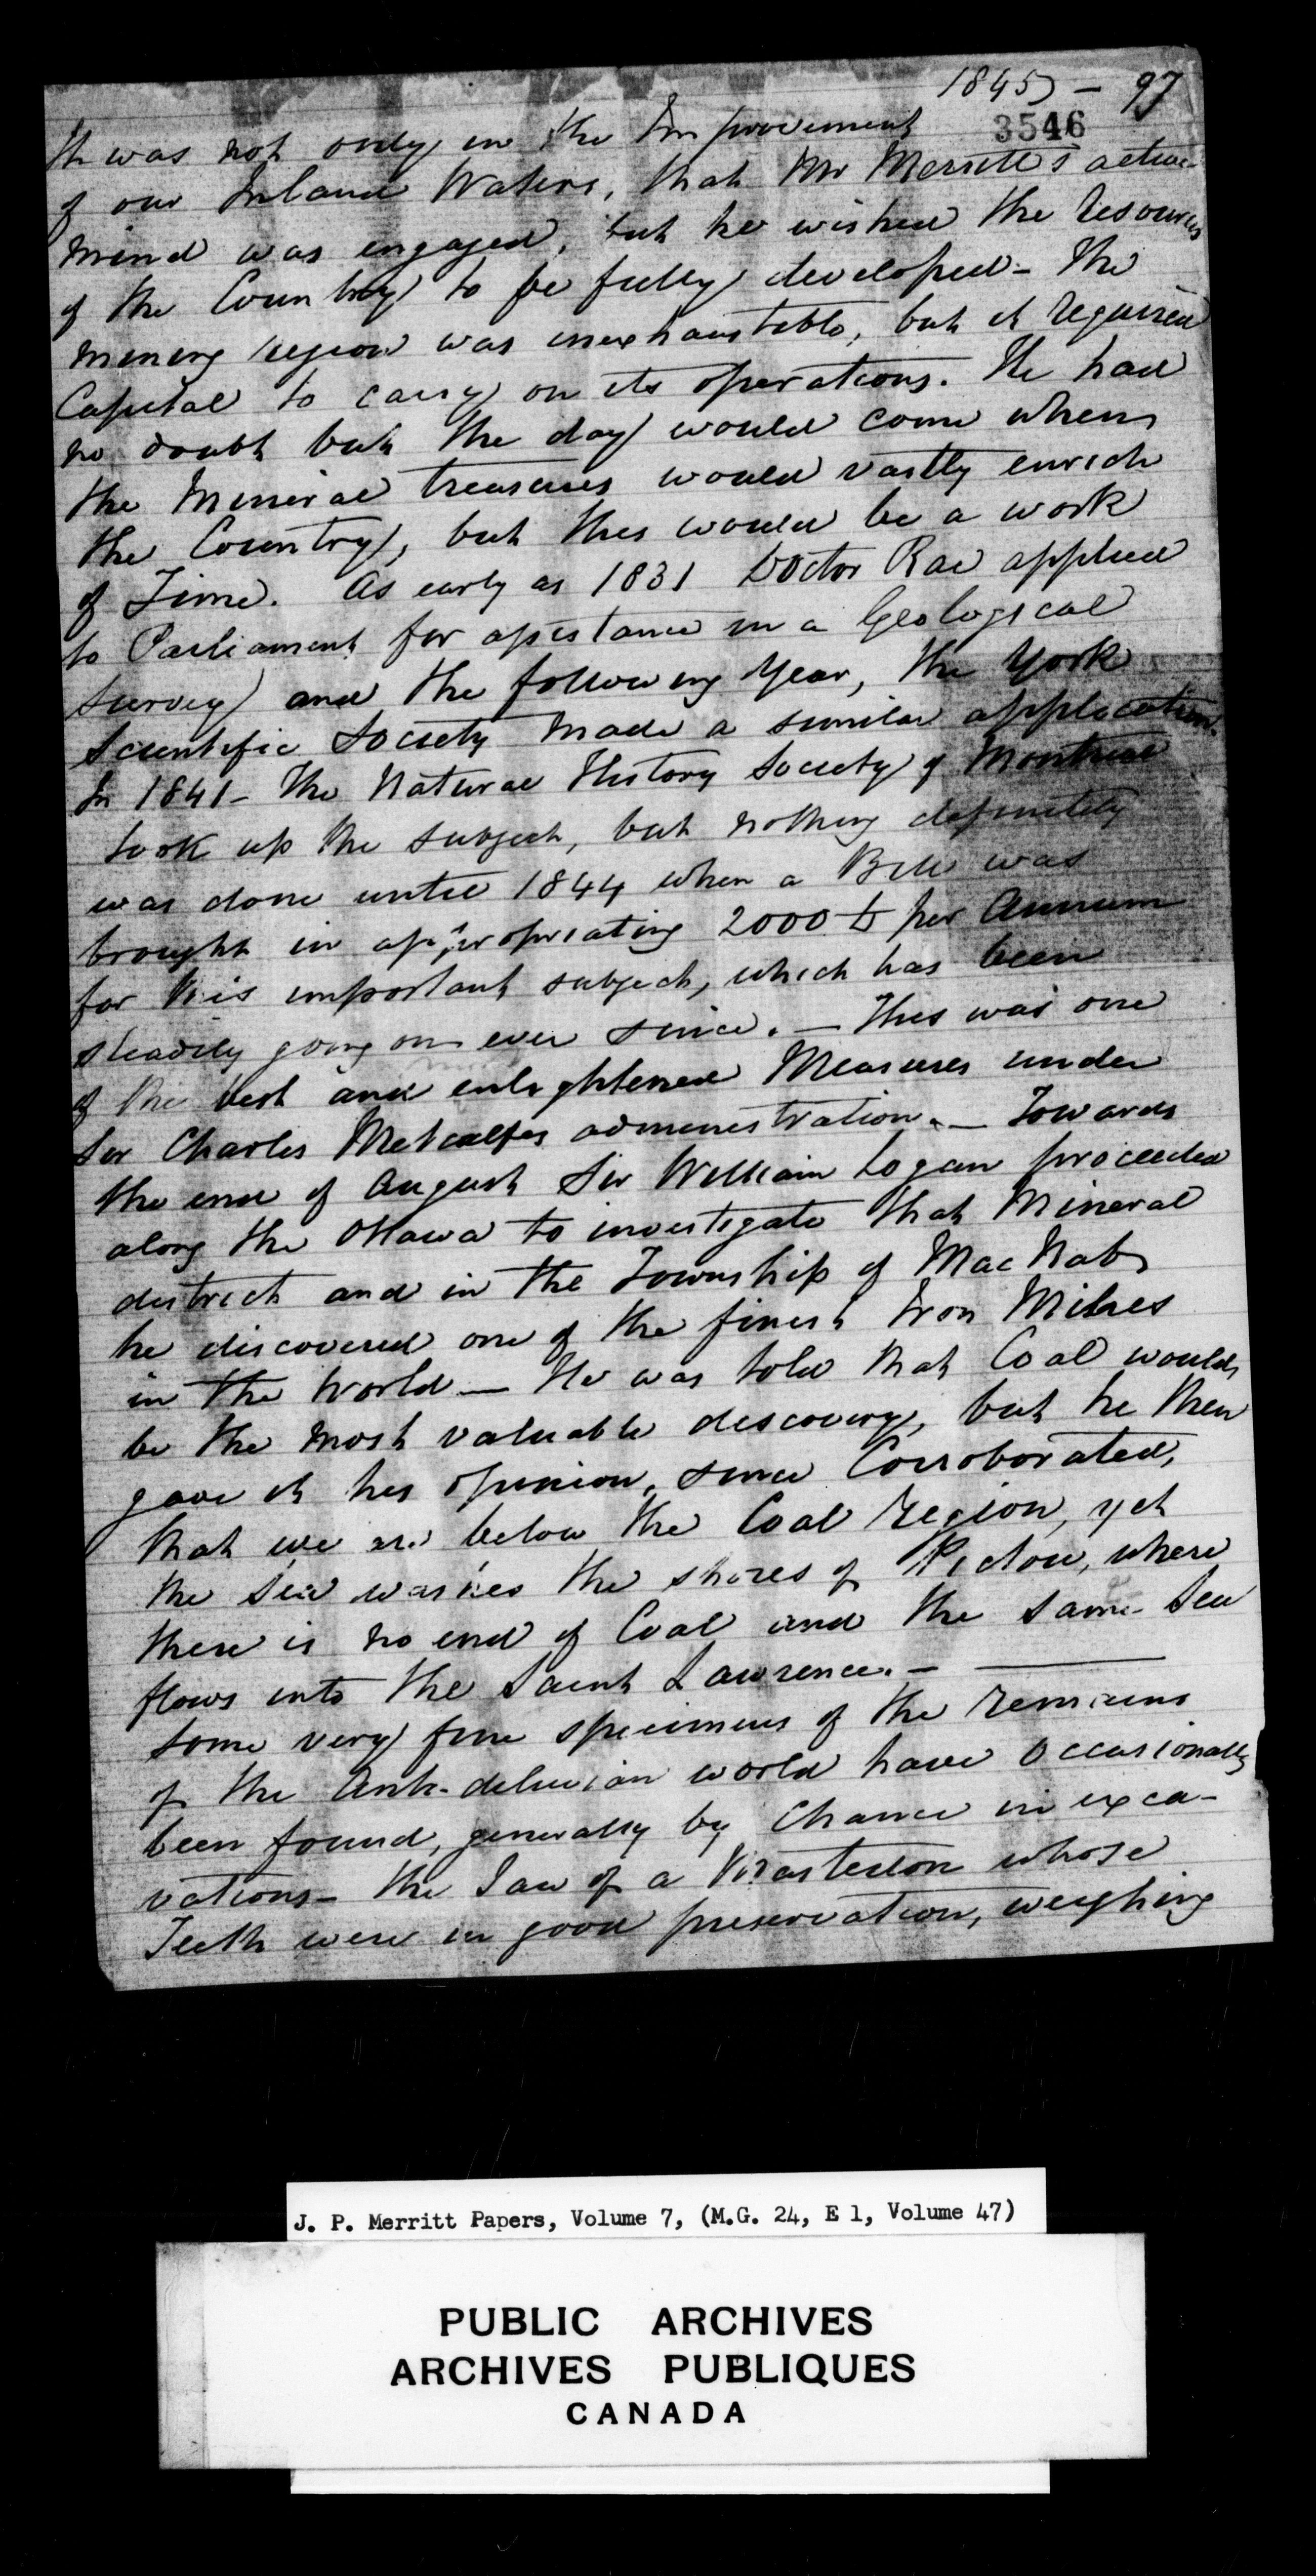 1845 - 97
3546
It was not only in the Improvement
of our Inland Waters, that Mr Merritt's active
mind was engaged, but he wished the resources
of the Country to be fully developed - The
mining region was inexhaustible, but it required
Capital to carry on its operations. He had
no doubt but the day would come when
the Mineral treasures would vastly enrich
the Country, but this would be a work
of Time. As early as 1831 Doctor Rae applied
to Parliament for assistance in a Geological
Survey and the following Year, the York
Scientific Society made a similar application.
In 1841 - The Natural History Society of Montreal
took up the subject, but nothing definitely
was done until 1844 when a Bill was
brought in appropriating 2000 £ per Annum
for this important subject, which has been
steadily going on ever since. - This was one
of the best and enlightened Measures under
Sir Charles Metcalfes administration. - Towards
the end of August Sir William Logan proceeded
along the Ottawa to investigate that Mineral
district and in the Township of MacNab
he discovered one of the finest Iron Mines
in the World - He was told that Coal would
be the most valuable discovery, but he then
gave it his opinion, since Corroborated,
that we are below the Coal region, yet
the Sea washes the shores of Pictou, where
there is no end of Coal and the same Sea
flows into the Saint Lawrence. -
Some very fine specimens of the remains
of the Anti-deluvian world have occasionally
been found, generally by Chance in exca-
vations - the Jaw of a Mastedon whose
Teeth were in good preservation, weighing
J. P. Merritt Papers, Volume 7, (M.G. 24, E 1, Volume 47)
PUBLIC ARCHIVES
ARCHIVES PUBLIQUES
CANADA